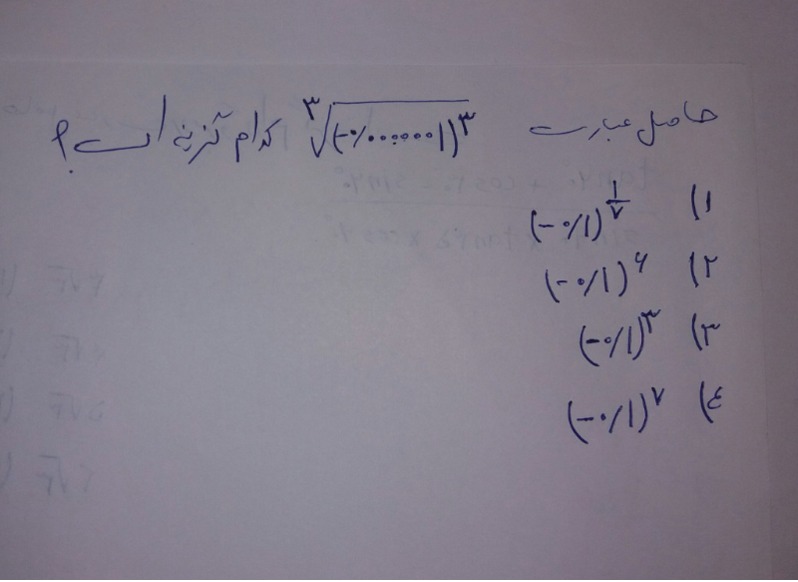 حاصل عبارت ∛(-۰/۰۰۰۰۰۰۱)^۳ کدام گزینه است؟
۱) (-۰/۱)^(۱/۷)
۲) (-۰/۱)^۶
۳) (-۰/۱)^۳
۴) (-۰/۱)^۷